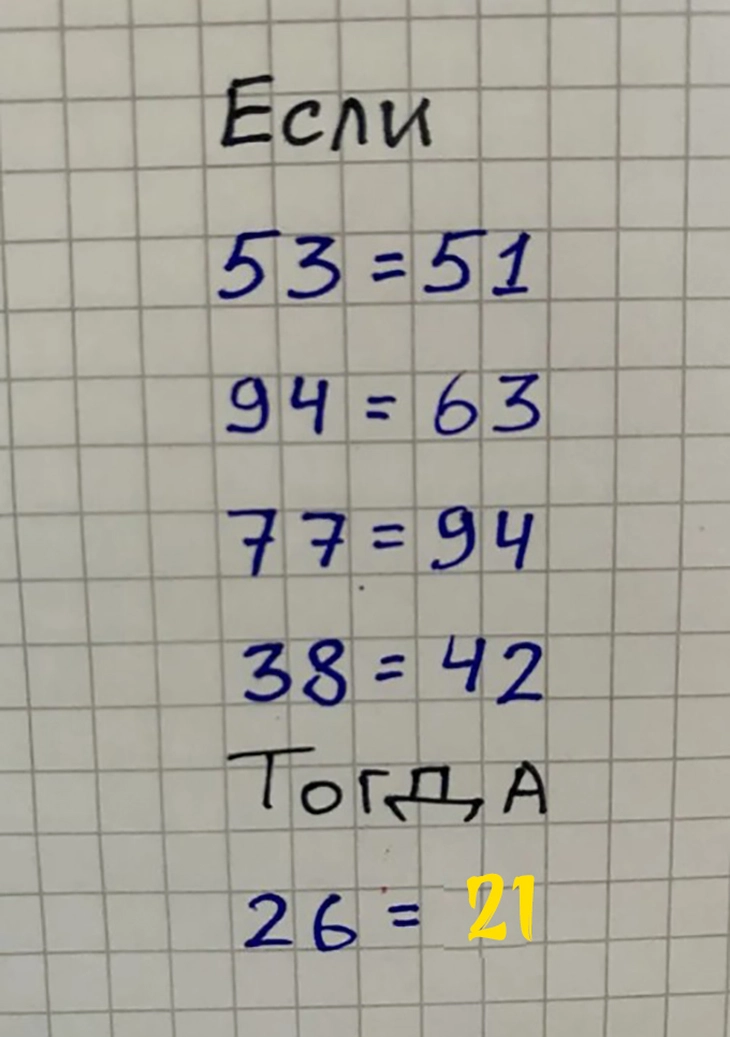 Если
53 = 51
94 = 63
77 = 94
38 = 42
ТогдА
26 = 21